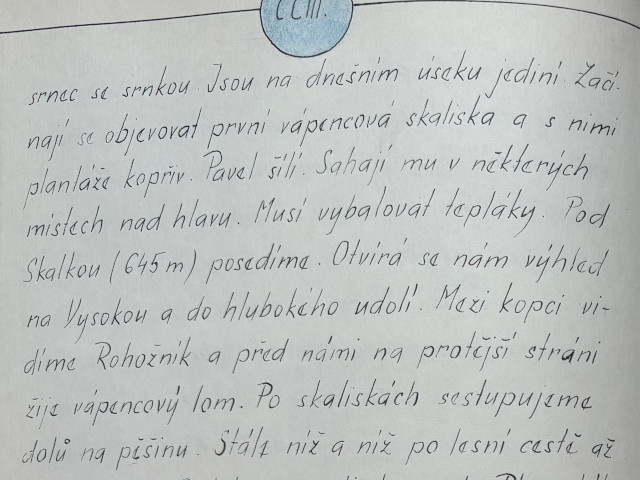 CCIII.
srnec se srnkou. Jsou na dnešním úseku jediní. Začí-
nají se objevovat první vápencová skaliska a s nimi
plantáže kopřiv. Pavel šílí. Sahají mu v některých
místech nad hlavu. Musí vybalovat tepláky. Pod
Skalkou (645m) posedíme. Otvírá se nám výhled
na Vysokou a do hlubokého udolí. Mezi kopci vi-
díme Rohožník a před námi na protější stráni
žije vápencový lom. Po skaliskách sestupujeme
dolů na pěšinu. Stále níž a níž po lesní cestě až